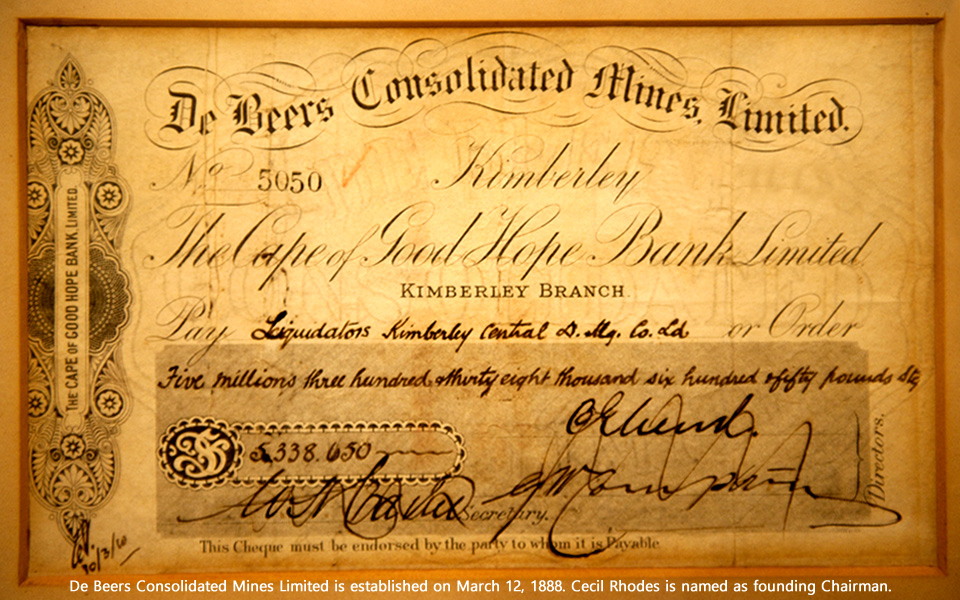 De Beers Consolidated Mines, Limited.
No 5050 Kimberley
The Cape of Good Hope Bank Limited
KIMBERLEY BRANCH.
Pay Liquidators Kimberley Central D. Mg. Co. Ld or Order
Five millions three hundred & thirty eight thousand six hundred & fifty pounds Stg
£5,338,650
Secretary.
Directors.
This Cheque must be endorsed by the party to whom it is Payable.
THE CAPE OF GOOD HOPE BANK, LIMITED.
De Beers Consolidated Mines Limited is established on March 12, 1888. Cecil Rhodes is named as founding Chairman.